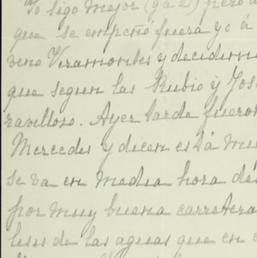 Yo sigo mejor (g a 2) pero a
que se empeñó fuera yo á
vino Viramontes y decidim
que segun las Rubio y Jos
ravilloso. Ayer tarde fueron
Mercedes y dicen está mu
se va en media hora de
por muy buena carretera
de las aguas que en